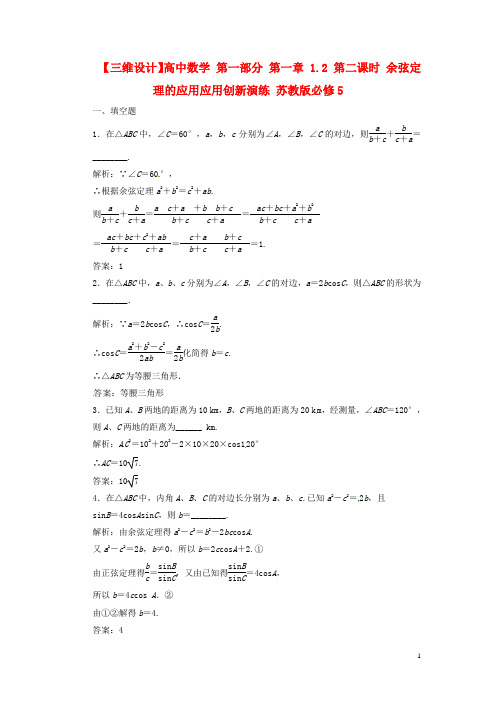 【三维设计】高中数学 第一部分 第一章 1.2 第二课时 余弦定
理的应用应用创新演练 苏教版必修5
一、填空题
1.在△ABC中,∠C=60°,a,b,c分别为∠A,∠B,∠C的对边,则a/(b+c)+b/(c+a)=
________.
解析:∵∠C=60°,
∴根据余弦定理a²+b²=c²+ab.
则a/(b+c)+b/(c+a)=(a c+a +b b+c)/(b+c c+a)=(ac+bc+a²+b²)/(b+c c+a)
=(ac+bc+c²+ab)/(b+c c+a)=(c+a b+c)/(b+c c+a)=1.
答案:1
2.在△ABC中,a、b、c分别为∠A,∠B,∠C的对边,a=2bcosC,则△ABC的形状为
________.
解析:∵a=2bcosC,∴cosC=a/2b.
∴cosC=(a²+b²-c²)/2ab=a/2b化简得b=c.
∴△ABC为等腰三角形.
答案:等腰三角形
3.已知A、B两地的距离为10 km,B、C两地的距离为20 km,经测量,∠ABC=120°,
则A、C两地的距离为______ km.
解析:AC²=10²+20²-2×10×20×cos120°
∴AC=10√7.
答案:10√7
4.在△ABC中,内角A、B、C的对边长分别为a、b、c.已知a²-c²=2b,且
sinB=4cosAsinC,则b=________.
解析:由余弦定理得a²-c²=b²-2bccosA.
又a²-c²=2b,b≠0,所以b=2ccosA+2.①
由正弦定理得b/c=sinB/sinC,又由已知得sinB/sinC=4cosA,
所以b=4ccos A.②
由①②解得b=4.
答案:4
1